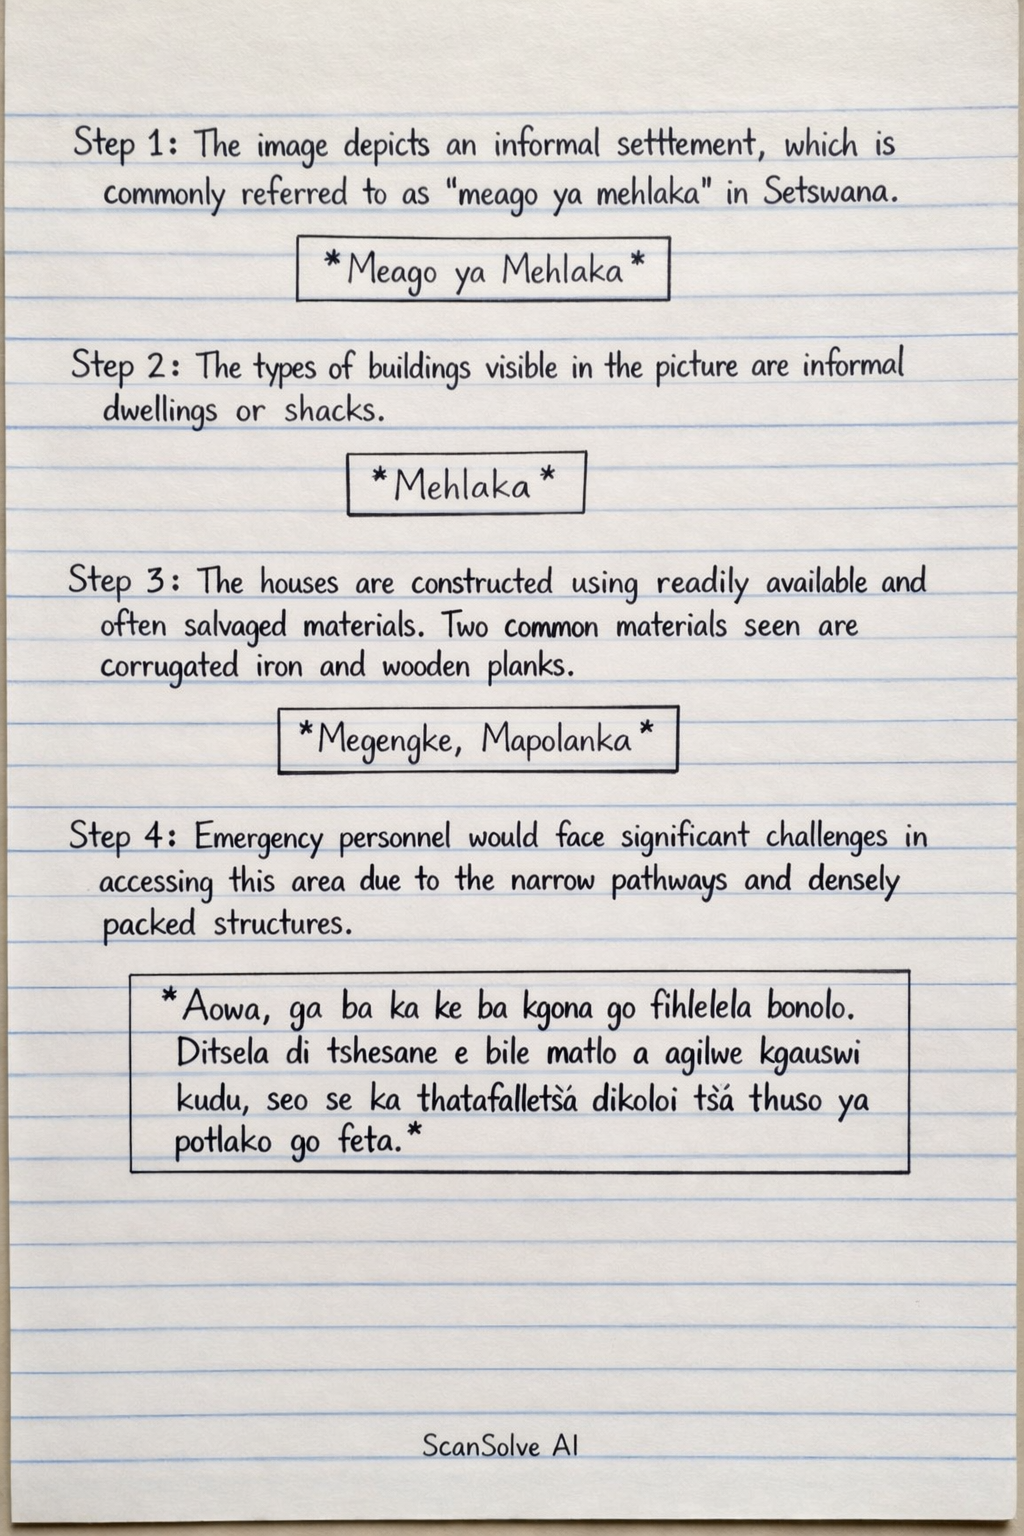 Step 1: The image depicts an informal setttement, which is
commonly referred to as "meago ya mehlaka" in Setswana.
*Meago ya Mehlaka*
Step 2: The types of buildings visible in the picture are informal
dwellings or shacks.
*Mehlaka*
Step 3: The houses are constructed using readily available and
often salvaged materials. Two common materials seen are
corrugated iron and wooden planks.
*Megengke, Mapolanka*
Step 4: Emergency personnel would face significant challenges in
accessing this area due to the narrow pathways and densely
packed structures.
*Aowa, ga ba ka ke ba kgona go fihlelela bonolo.
Ditsela di tshesane e bile matlo a agilwe kgauswi
kudu, seo se ka thatafalletšá dikoloi tšá thuso ya
potlako go feta.*
ScanSolve AI